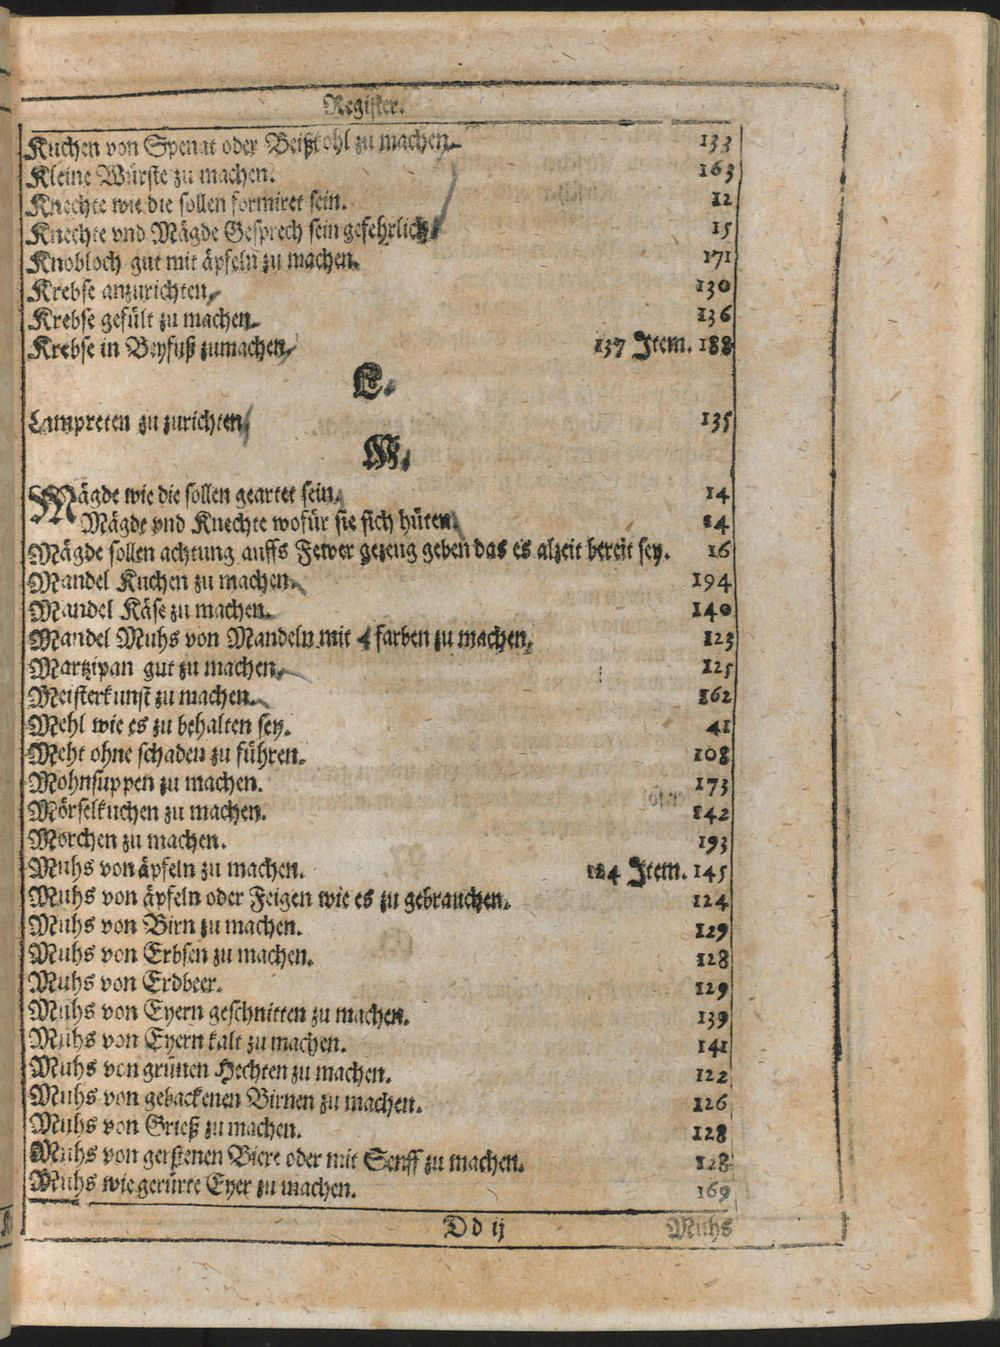 Register.
Kuchen von Spenat oder Beißkohl zu machen. 133
Kleine Würste zu machen. 163
Knechte wie die sollen formiret sein. 12
Knechte vnd Mägde Gesprech sein gefehrlich. 15
Knobloch gut mit äpfeln zu machen. 171
Krebse anzurichten. 130
Krebse gefült zu machen. 136
Krebse in Beyfuß zumachen. 137 Item. 188
L.
Lampreten zu zurichten. 135
M.
Mägde wie die sollen geartet sein. 14
Mägde vnd Knechte wofür sie sich hüten. 14
Mägde sollen achtung auffs Fewer gezeug geben das es alzeit bereit sey. 16
Mandel Kuchen zu machen. 194
Mandel Käse zu machen. 140
Mandel Muhs von Mandeln mit 4 farben zu machen. 123
Martzipan gut zu machen. 125
Meisterkunst zu machen. 162
Mehl wie es zu behalten sey. 41
Meht ohne schaden zu führen. 108
Mohnsuppen zu machen. 173
Mörselkuchen zu machen. 142
Morchen zu machen. 193
Muhs von äpfeln zu machen. 124 Item. 145
Muhs von äpfeln oder Feigen wie es zu gebrauchen. 124
Muhs von Birn zu machen. 129
Muhs von Erbsen zu machen. 128
Muhs von Erdbeer. 129
Muhs von Eyern geschnitten zu machen. 139
Muhs von Eyern kalt zu machen. 141
Muhs von grünen Hechten zu machen. 122
Muhs von gebackenen Birnen zu machen. 126
Muhs von Grieß zu machen. 128
Muhs von gerstenen Biere oder mit Senff zu machen. 128
Muhs wie gerürte Eyer zu machen. 169
Dd ij Muhs